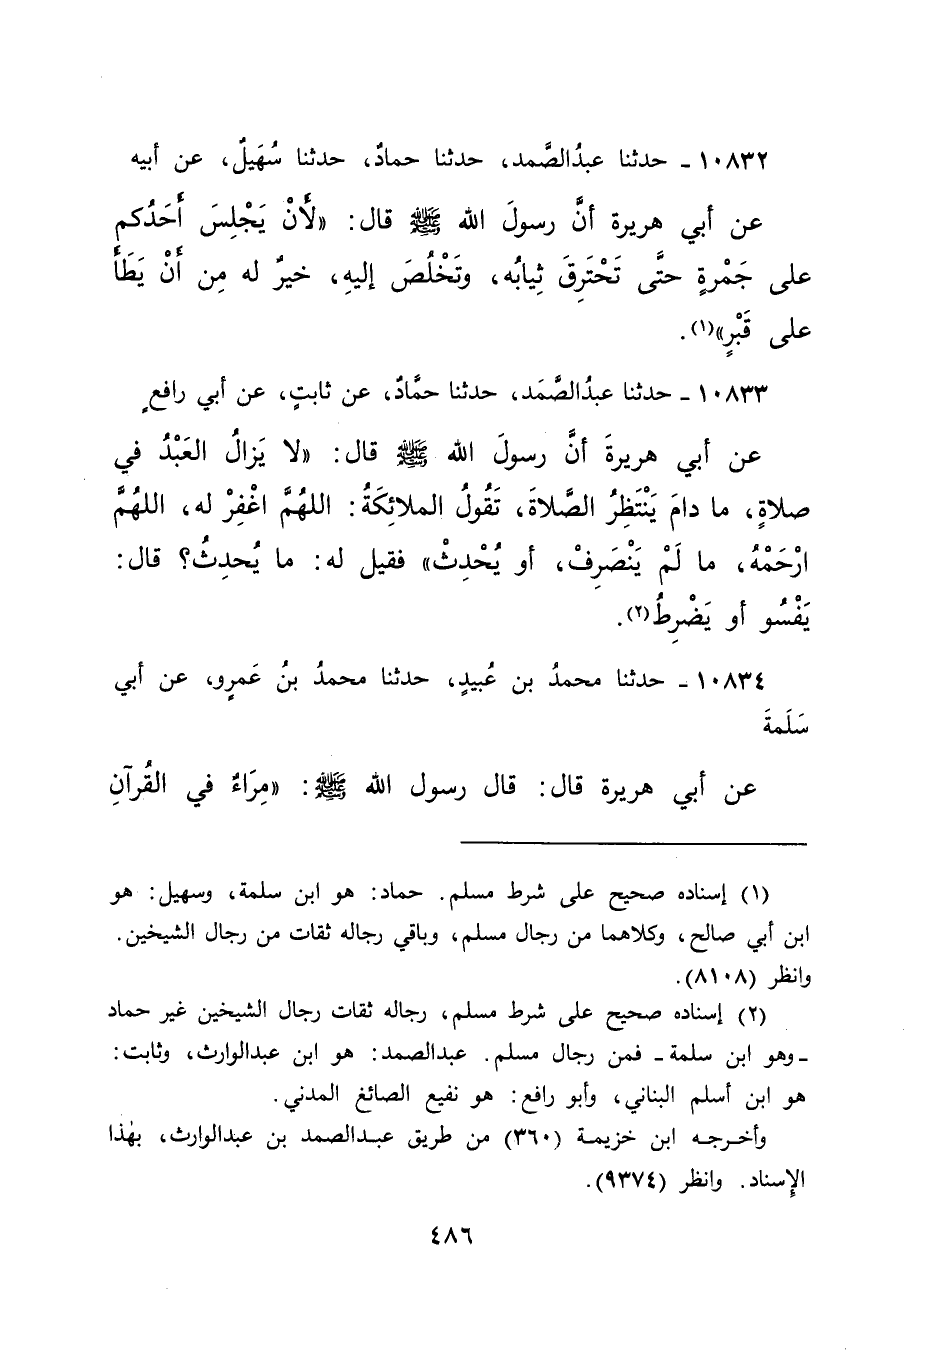 ١٠٨٣٢ ـ حدثنا عبدُالصَّمد، حدثنا حمادٌ، حدثنا سُهَيلٌ، عن أبيه
عن أبي هريرة أنَّ رسولَ الله ﷺ قال: «لَأَنْ يَجْلِسَ أَحَدُكم
على جَمْرةٍ حتَّى تَحْتَرِقَ ثِيابُه، وتَخْلُصَ إليهِ، خيرٌ له مِن أَنْ يَطَأَ
على قَبْرٍ»(١).
١٠٨٣٣ ـ حدثنا عبدُالصَّمَد، حدثنا حمَّادٌ، عن ثابتٍ، عن أبي رافعٍ
عن أبي هريرةَ أنَّ رسولَ الله ﷺ قال: «لا يَزالُ العَبْدُ في
صلاةٍ، ما دامَ يَنْتَظِرُ الصَّلاةَ، تَقُولُ الملائِكَةُ: اللهُمَّ اغْفِرْ له، اللهُمَّ
ارْحَمْهُ، ما لَمْ يَنْصَرِفْ، أو يُحْدِثْ» فقيل له: ما يُحدِثُ؟ قال:
يَفْسُو أو يَضْرِطُ(٢).
١٠٨٣٤ ـ حدثنا محمدُ بن عُبيدٍ، حدثنا محمدُ بنُ عَمرٍو، عن أبي
سَلَمةَ
عن أبي هريرة قال: قال رسول الله ﷺ: «مِرَاءٌ في القُرآنِ
(١) إسناده صحيح على شرط مسلم. حماد: هو ابن سلمة، وسهيل: هو
ابن أبي صالح، وكلاهما من رجال مسلم، وباقي رجاله ثقات من رجال الشيخين.
وانظر (٨١٠٨).
(٢) إسناده صحيح على شرط مسلم، رجاله ثقات رجال الشيخين غير حماد
ـ وهو ابن سلمة ـ فمن رجال مسلم. عبدالصمد: هو ابن عبدالوارث، وثابت:
هو ابن أسلم البناني، وأبو رافع: هو نفيع الصائغ المدني.
وأخرجه ابن خزيمة (٣٦٠) من طريق عبدالصمد بن عبدالوارث، بهٰذا
الإسناد. وانظر (٩٣٧٤).
٤٨٦